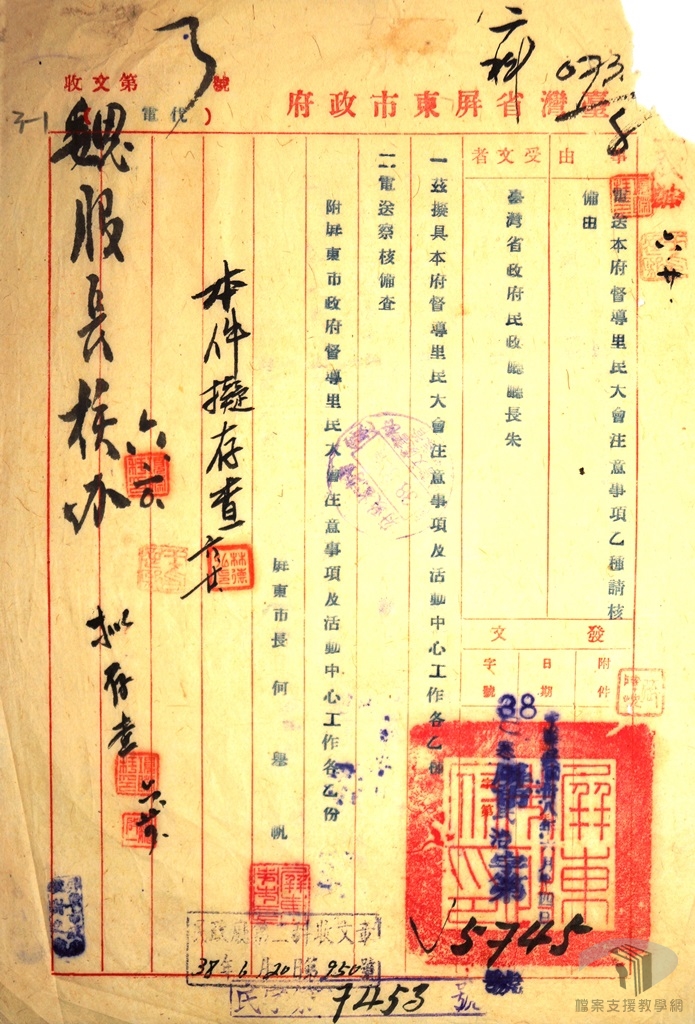 臺灣省屏東市政府
代電
收文第 號
二科
事由
電送本府督導里民大會注意事項乙種請核
備由
受文者
臺灣省政府民政廳廳長朱
發文
附件
日期
字號
38
5745
一茲擬具本府督導里民大會注意事項及活動中心工作各乙種
二電送察核備查
附屏東市政府督導里民大會注意事項及活動中心工作各乙份
屏東市長 何舉帆
本件擬存查
魏股長核办
拟存查
收文章
38年6月20日第950號
民字第7453號
檔案支援教學網